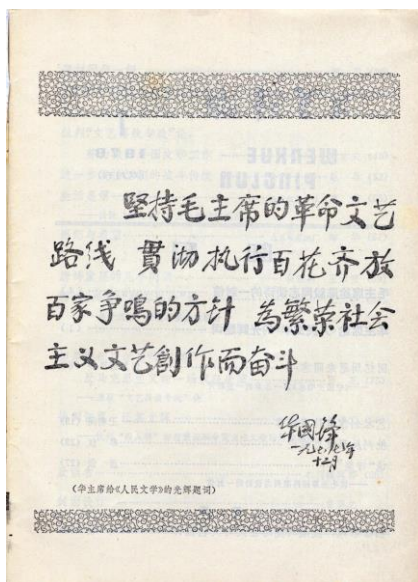 坚持毛主席的革命文艺
路线 貫彻执行百花齐放
百家争鳴的方针 為繁荣社会
主义文艺創作而奋斗
华國锋
一九七七年
十二月
(华主席给《人民文学》的光辉题词)